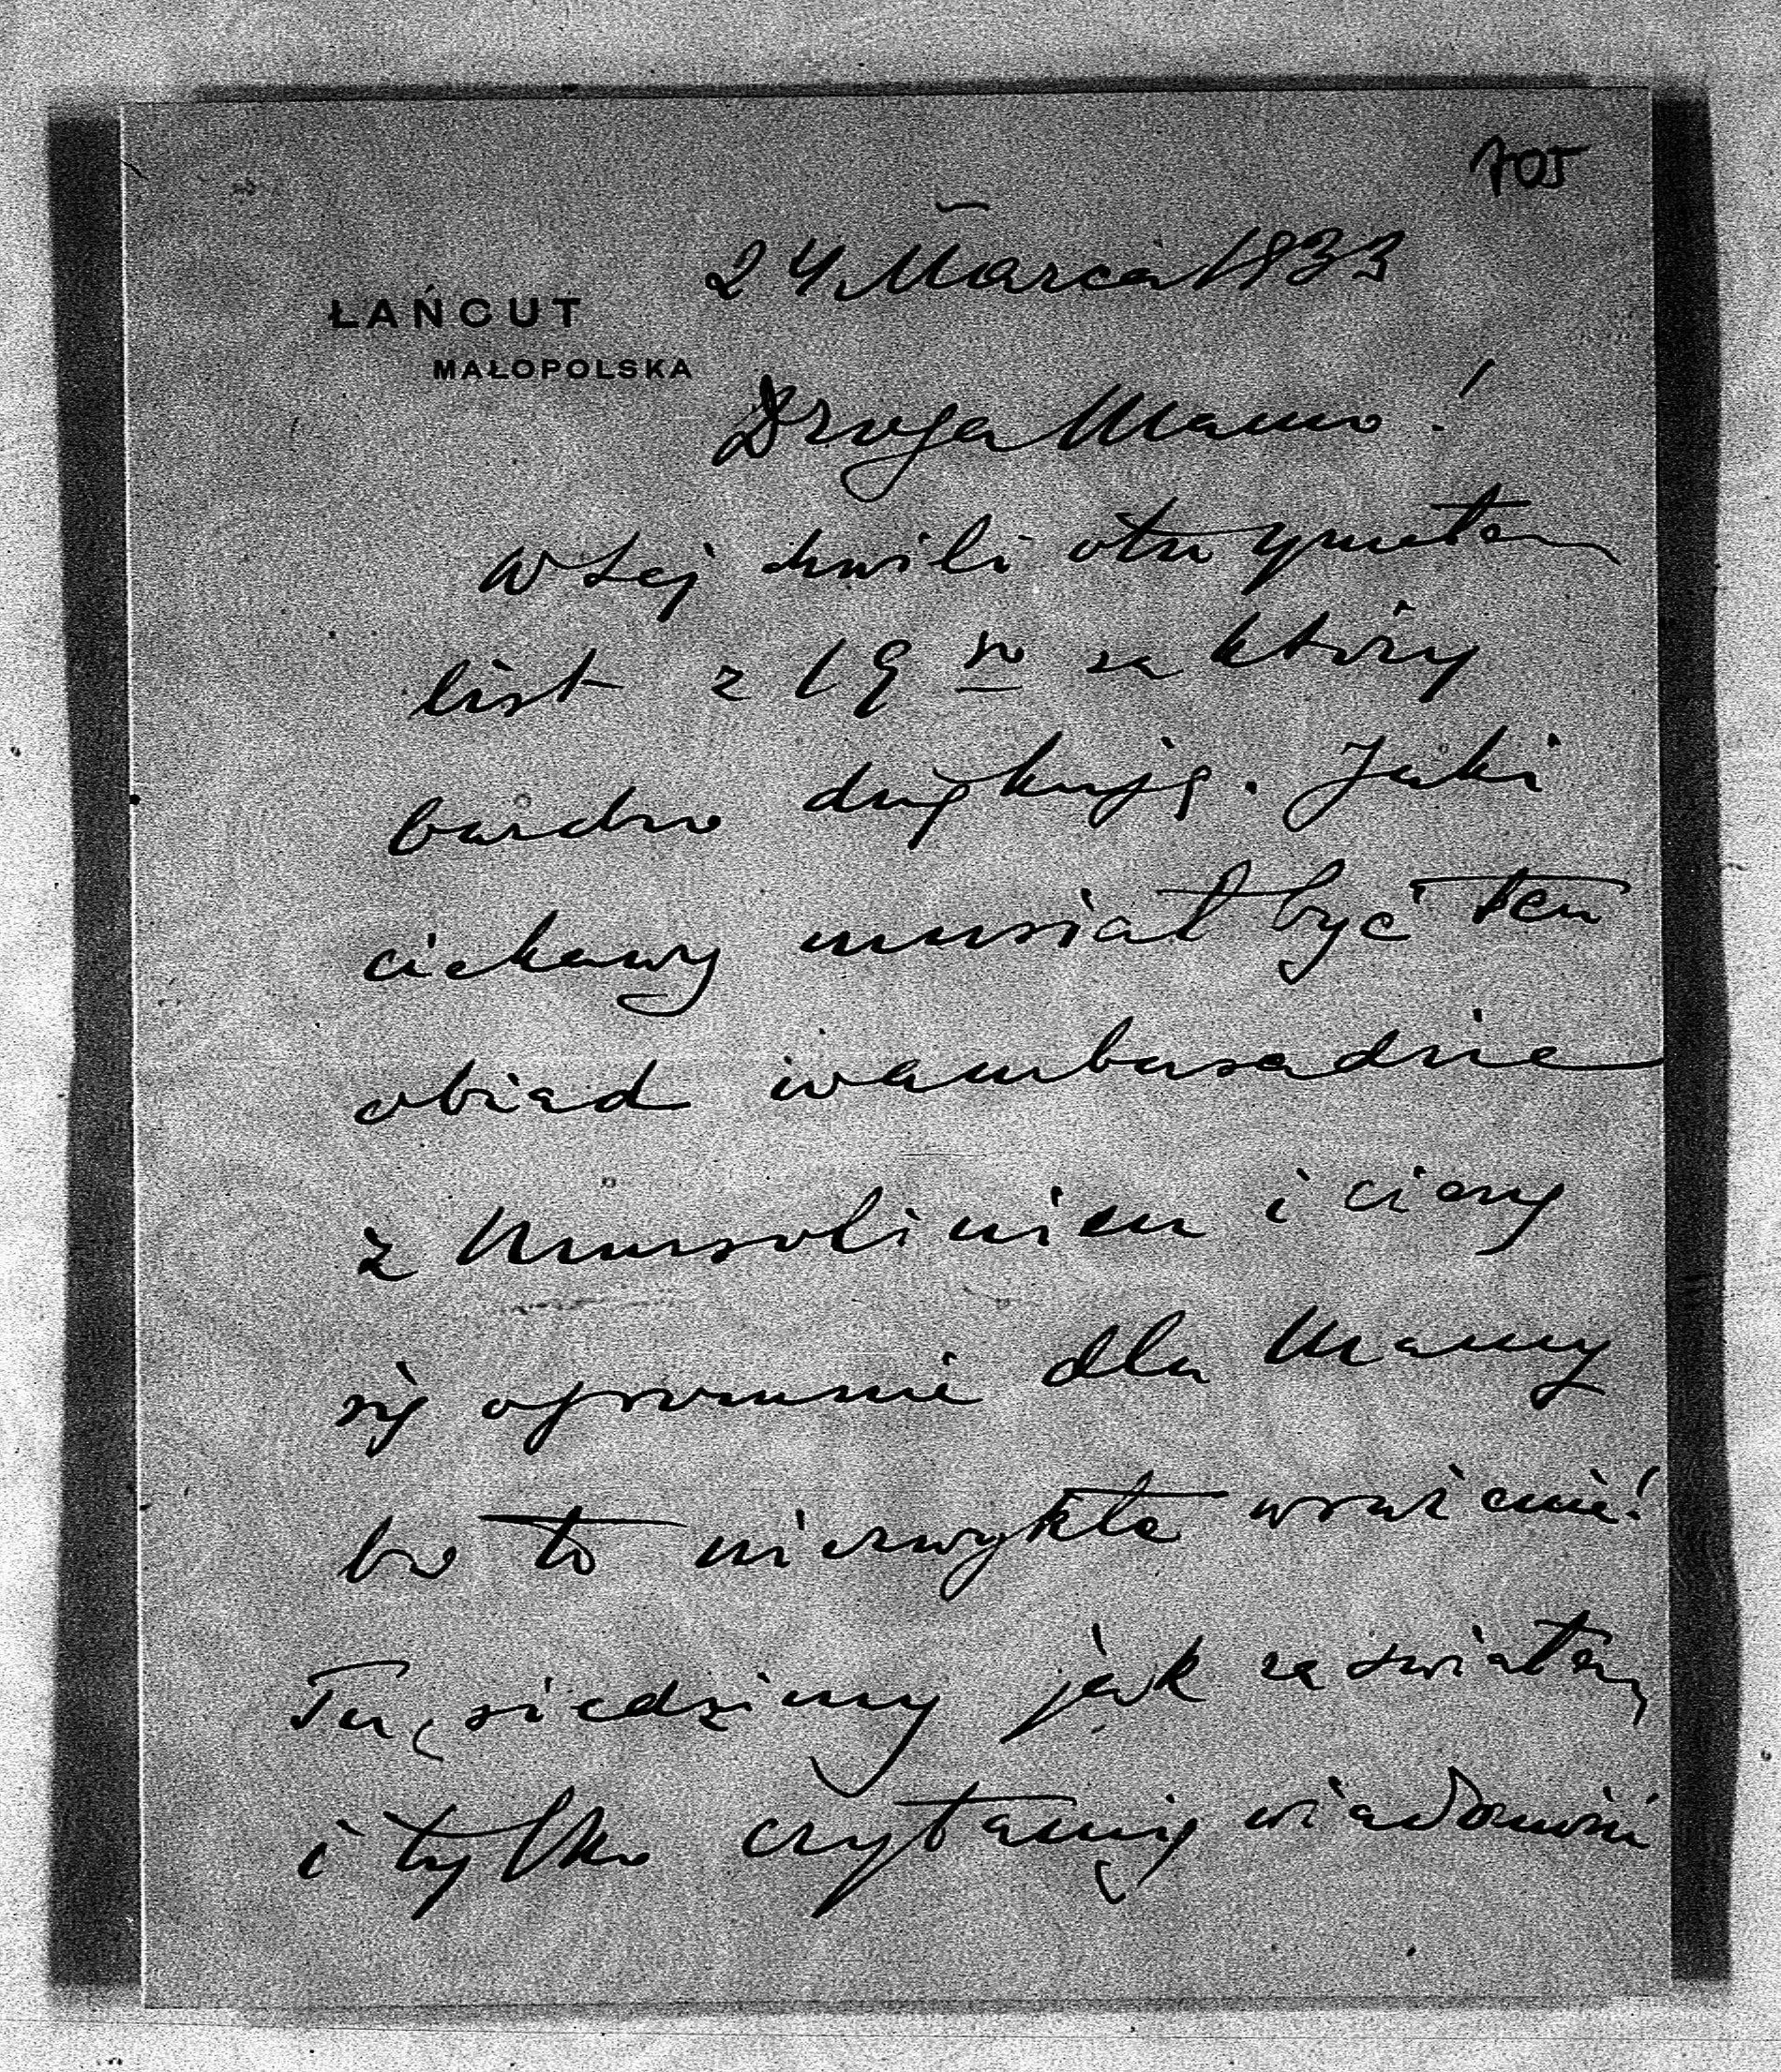 705
24 Marca 1933
ŁAŃCUT
MAŁOPOLSKA
Droga Mamo!
W tej chwili otrzymałem
list z 19 go za który
bardzo dziękuję. Jaki
ciekawy musiał być ten
obiad w ambasadzie
z Mussolinim i cieszy
się ogromnie dla Mamy
bo to niezwykłe wrażenie!
Tu siedzimy jak za światem
i tylko czytamy wiadomości